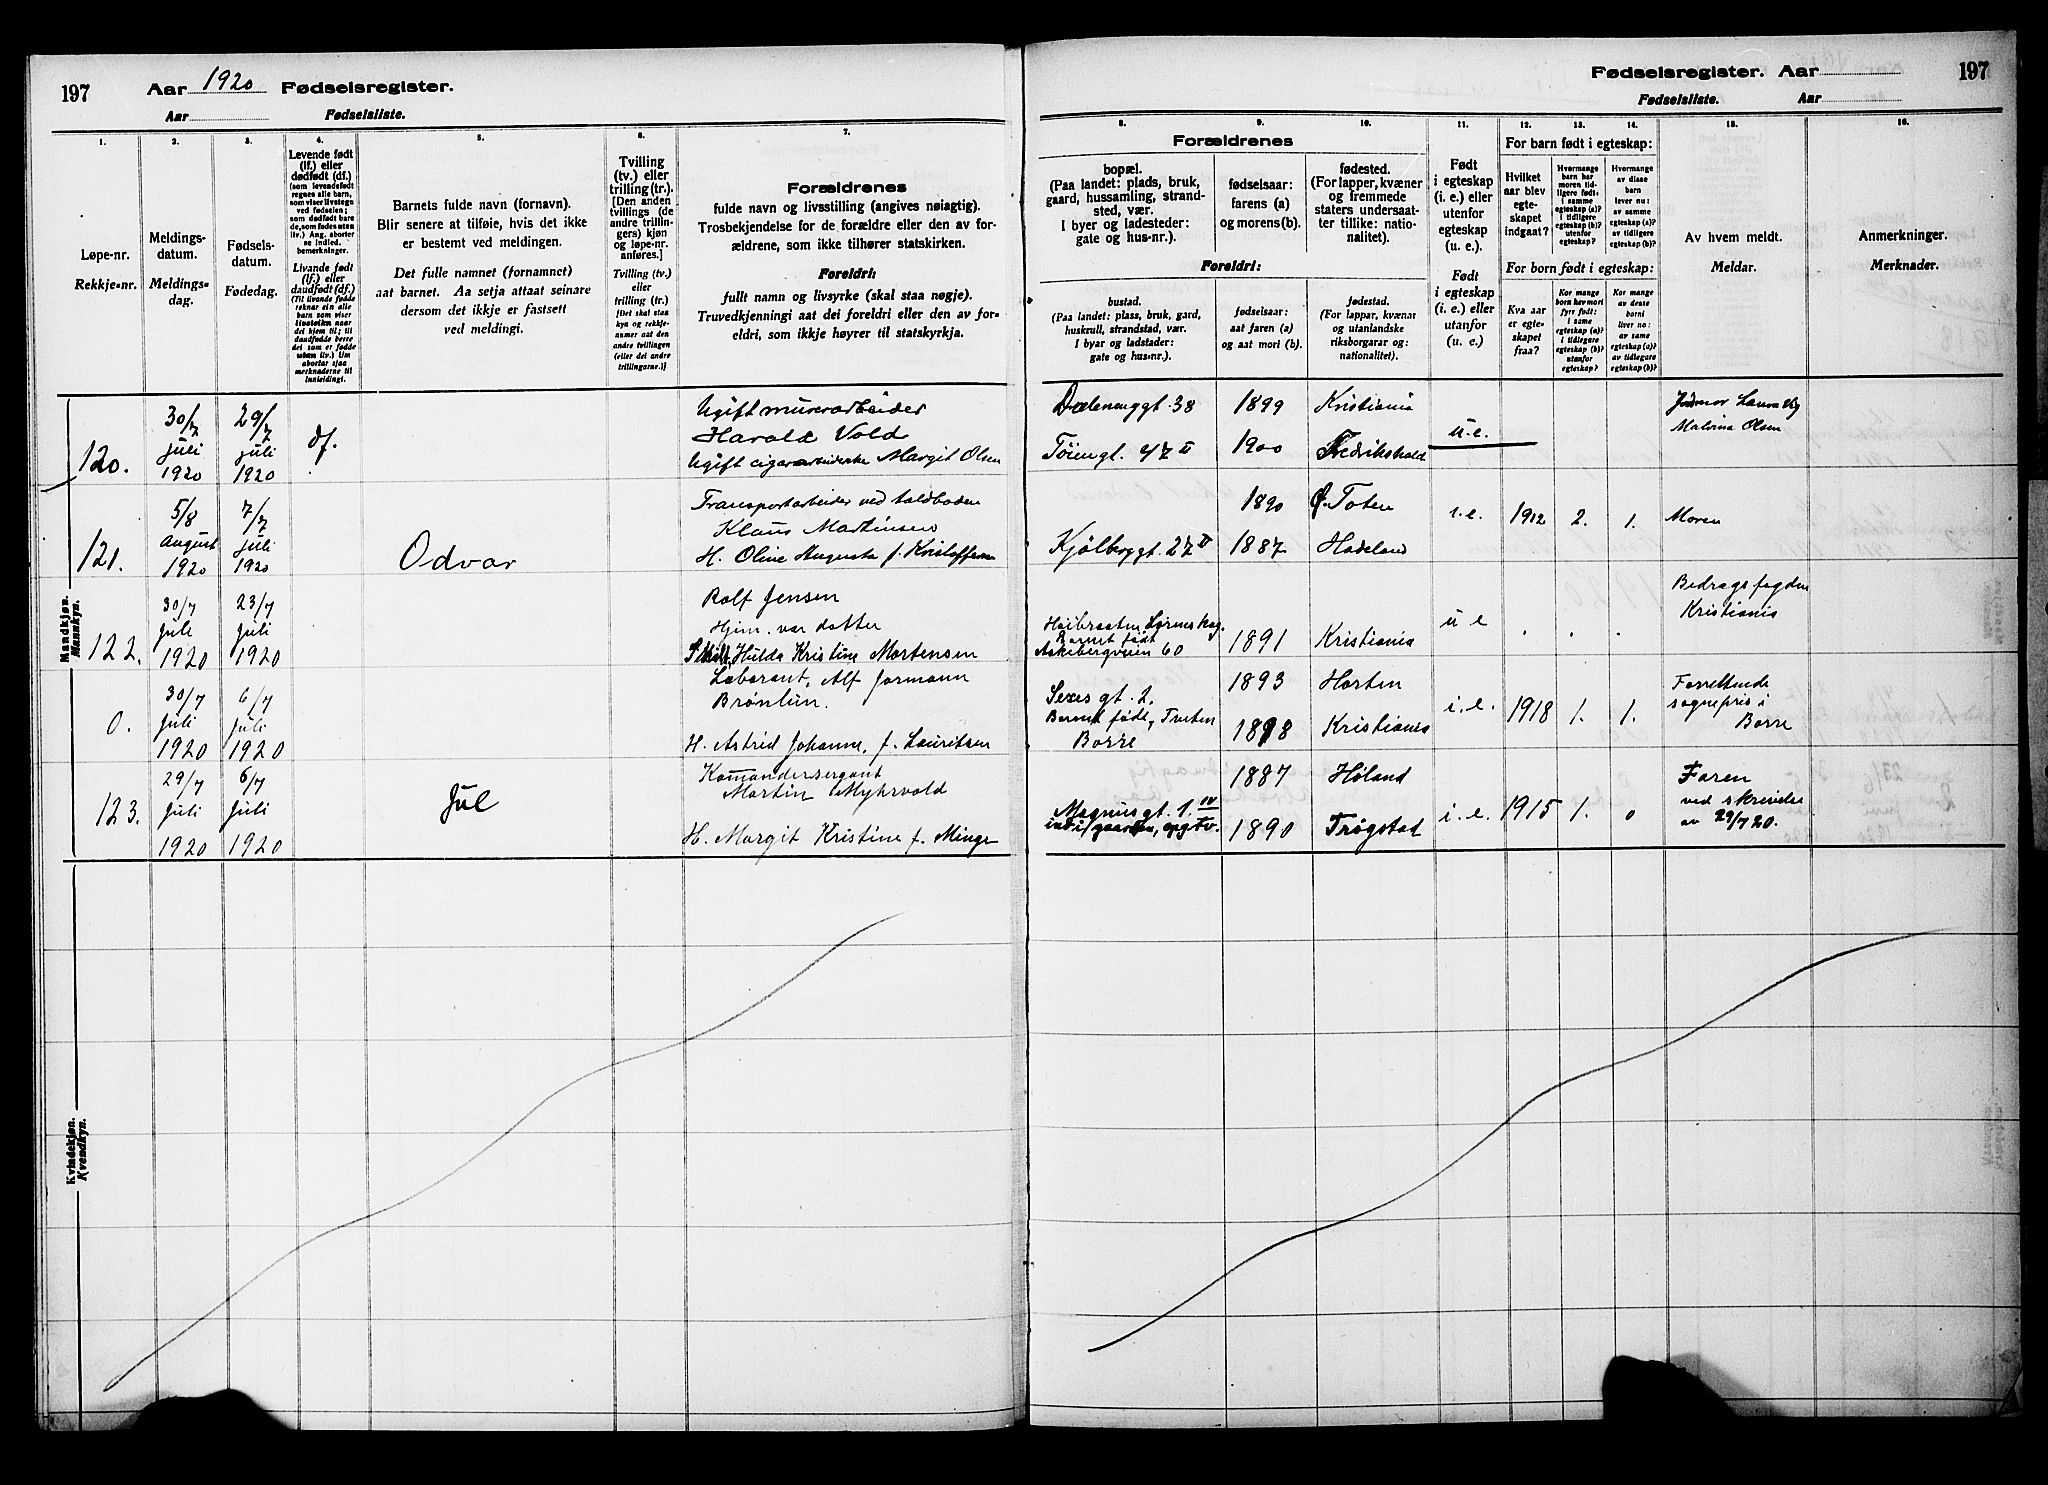 197
Aar 1920 Fødselsregister.
Aar Fødselsliste.
1.
Løpe-nr.
Rekkje-nr.
2.
Meldings-
datum.
Meldings-
dag.
3.
Fødsels-
datum.
Fødedag.
4.
Levende født
(lf.) eller
dødfødt (df.)
(som levendefødt
regnes alle barn,
som viser livstegn
ved fødselen;
som dødfødt bare
de, som fødes uten
liv.) Ang. aborter
se indled.
bemerkninger.
Livande født
(lf.) eller
daudfødt (df.)
(Til livande fødde
reknar ein alle
barn som viser
livsteikn naar
dei kjem til; til
daudfødde berre
dei som er fødde
utan liv.) Um
abortar sjaa
merknaderne til
innleidingi.
5.
Barnets fulde navn (fornavn).
Blir senere at tilføie, hvis det ikke
er bestemt ved meldingen.
Det fulle namnet (fornamnet)
aat barnet. Aa setja attaat seinare
dersom det ikkje er fastsett
ved meldingi.
6.
Tvilling
(tv.) eller
trilling (tr.).
[Den anden
tvillings (de
andre trillin-
gers) kjøn
og løpe-nr.
anføres.]
Tvilling (tv.)
eller
trilling (tr.)
[Det skal staa
kyn og rekkje-
numer aat den
andre tvillingen
(eller dei andre
trillingarne.)]
7.
Forældrenes
fulde navn og livsstilling (angives nøiagtig).
Trosbekjendelse for de forældre eller den av for-
ældrene, som ikke tilhører statskirken.
Foreldri:
fullt namn og livsyrke (skal staa nøgje).
Truvedkjenningi aat dei foreldri eller den av for-
eldri, som ikkje høyrer til statskyrkja.
Mandkjøn.
Mannkyn.
120.
30/7
Juli
1920
29/7
Juli
1920
df.
Ugift murerarbeider
Harald Vold
Ugift cigararbeiderske Margit Olsen
121.
5/8
August
1920
7/7
Juli
1920
Odvar
Transportarbeider ved toldboden
Klaus Martinsen
H. Oline Augusta f. Kristoffersen
122.
30/7
Juli
1920
23/7
Juli
1920
Rolf Jensen
Hjem. var. datter
Skilt, Hulda Kristine Mortensen
0.
30/7
Juli
1920
6/7
Juli
1920
Laborant, Alf Jormann
Brønlun.
H. Astrid Johanne, f. Lauritsen
123.
29/7
Juli
1920
6/7
Juli
1920
Jul
Komandersergant
Martin Myhrvold
H. Margit Kristine f. Minge
Kvindekjøn.
Kvendkyn.
Fødselsregister. Aar
197
Fødselsliste. Aar
8.
9.
10.
Forældrenes
bopæl.
(Paa landet: plads, bruk,
gaard, hussamling, strand-
sted, vær.
I byer og ladesteder:
gate og hus-nr.).
fødselsaar:
farens (a)
og morens (b).
fødested.
(For lapper, kvæner
og fremmede
staters undersaat-
ter tillike: natio-
nalitet).
Foreldri:
bustad.
(Paa landet: plass, bruk, gard,
huskrull, strandstad, vær.
I byar og ladstader:
gate og hus-nr.).
fødselsaar:
aat faren (a)
og aat mori (b).
fødestad.
(For lappar, kvænar
og utanlandske
riksborgarar og:
nationalitet).
11.
Født
i egteskap
(i. e.) eller
utenfor
egteskap
(u. e.).
Født
i egteskap
(i. e.) eller
utanfor
(u. e.).
12.
13.
14.
For barn født i egteskap:
Hvilket
aar blev
egte-
skapet
indgaat?
Hvormange
barn har
moren tid-
ligere født:
i samme
egteskap (a)?
i tidligere
egteskap (b)?
utenfor
egteskap?
Hvormange
av disse
barn
lever nu:
av samme
egteskap (a)?
av tidligere
egteskap (b)?
For born født i egteskap:
Kva aar
er egte-
skapet
fraa?
Kor mange
born hev mori
fyrr født:
i same
egteskap (a)?
i tidlegare
egteskap (b)?
utanfor
egteskap?
Kor mange
av desse
borni
liver no:
av same
egteskap (a)?
av tidlegare
egteskap (b)?
15.
Av hvem meldt.
Meldar.
16.
Anmerkninger.
Merknader.
Dælenenggt. 38
1899
Kristiania
u. e.
Jordmor Laura
Malvina Olsen
Töiengt. 47 II
1900
Fredrikshald
1890
Ø. Toten
i. e.
1912
2.
1.
Moren
Kjölberggt. 27 II
1887
Hadeland
Høibraaten Lørenskog.
Barnet født
Aakebergveien 60
1891
Kristiania
u e
Bidragsfogden
Kristiania
1893
Horten
Sexes gt. 2.
Barnet født, Tveten
Borre
1898
Kristiania
i. e.
1918
1.
1.
Forrettende
sognepres i
Borre
1887
Høland
Magnusgt. 1. IV
ind i gaarden, opg. tv.
1890
Trøgstad
i. e.
1915
1.
0
Faren
ved skrivelse
av 29/7 20.